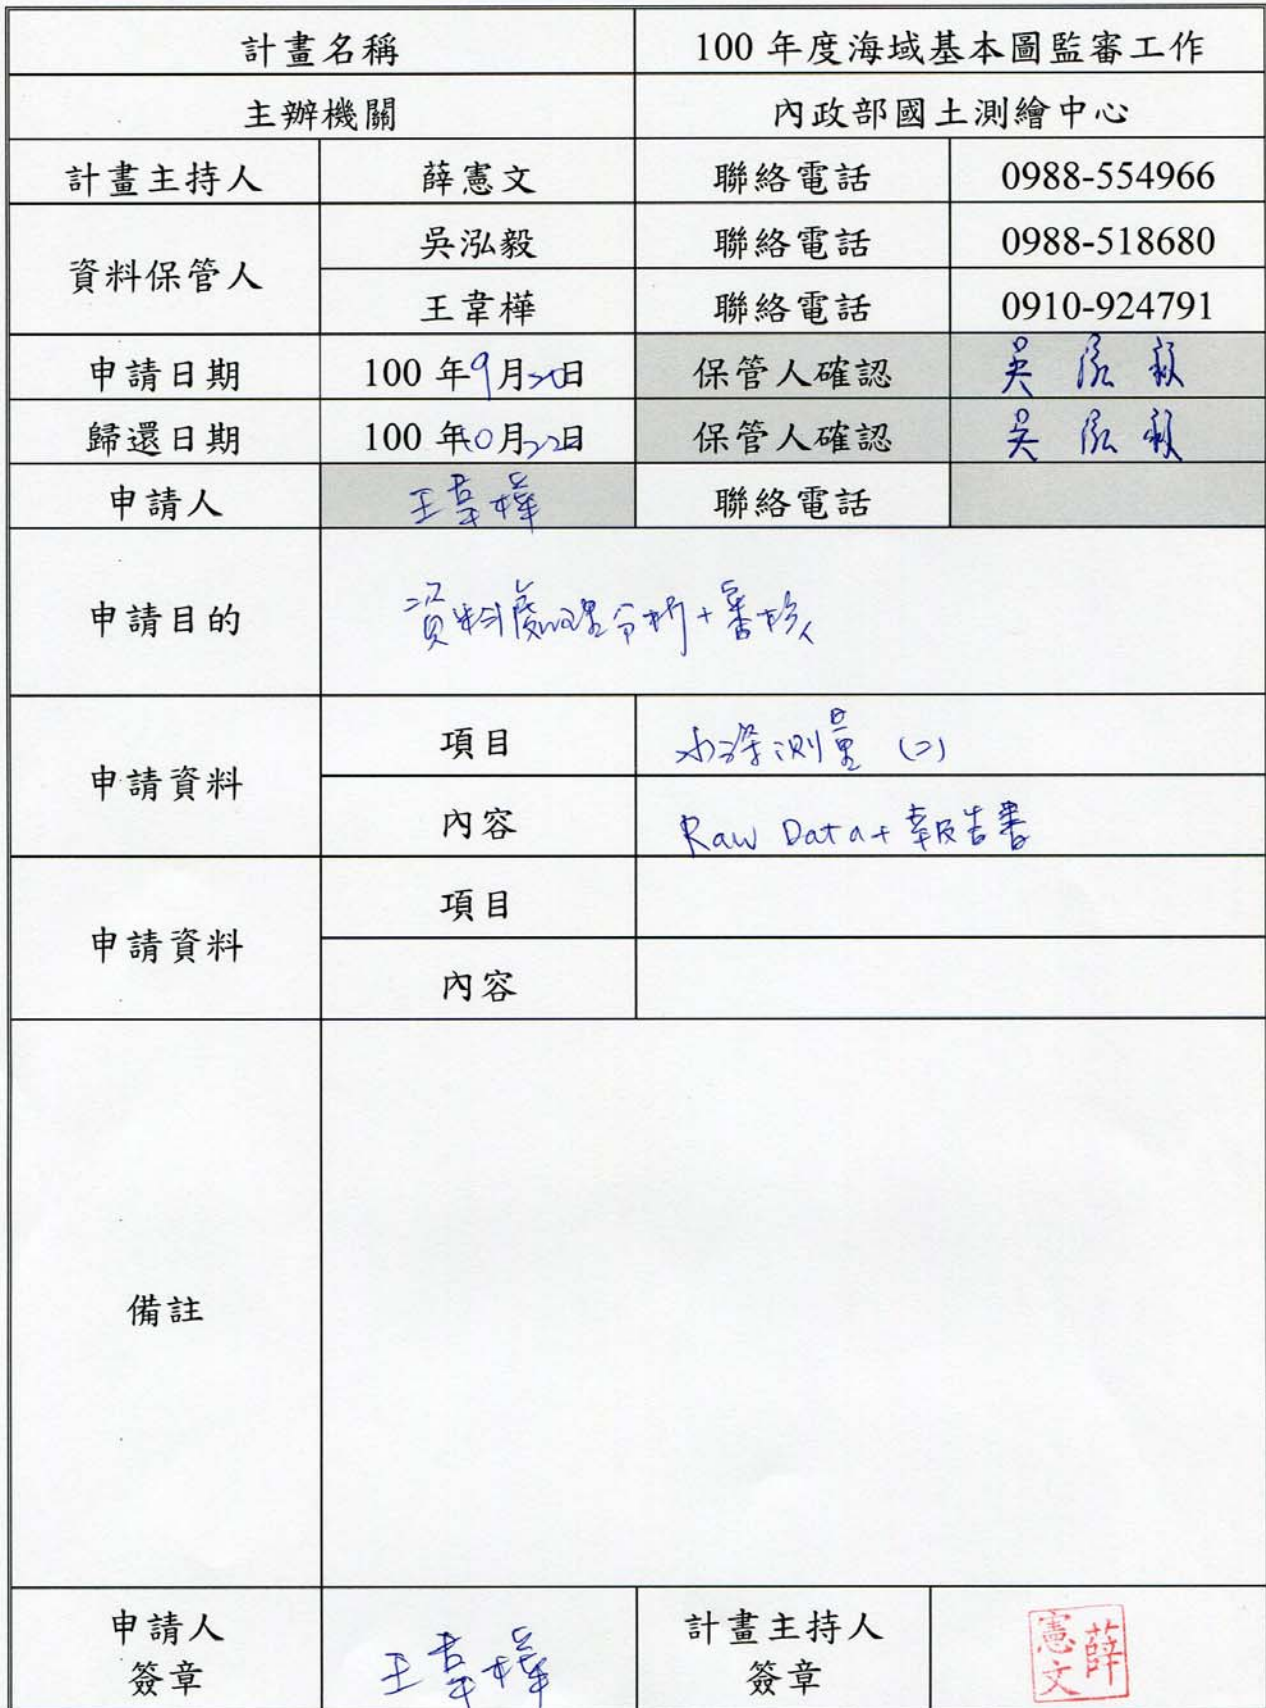 計畫名稱 100 年度海域基本圖監審工作
主辦機關 內政部國土測繪中心
計畫主持人 薛憲文 聯絡電話 0988-554966
資料保管人 吳泓毅 聯絡電話 0988-518680
王韋樺 聯絡電話 0910-924791
申請日期 100 年9月20日 保管人確認 吳泓毅
歸還日期 100 年10月22日 保管人確認 吳泓毅
申請人 王韋樺 聯絡電話
申請目的 資料處理分析+審核
申請資料 項目 水深測量 (二)
內容 Raw Data+報告書
申請資料 項目
內容
備註
申請人 計畫主持人
簽章 王韋樺 簽章 薛憲文